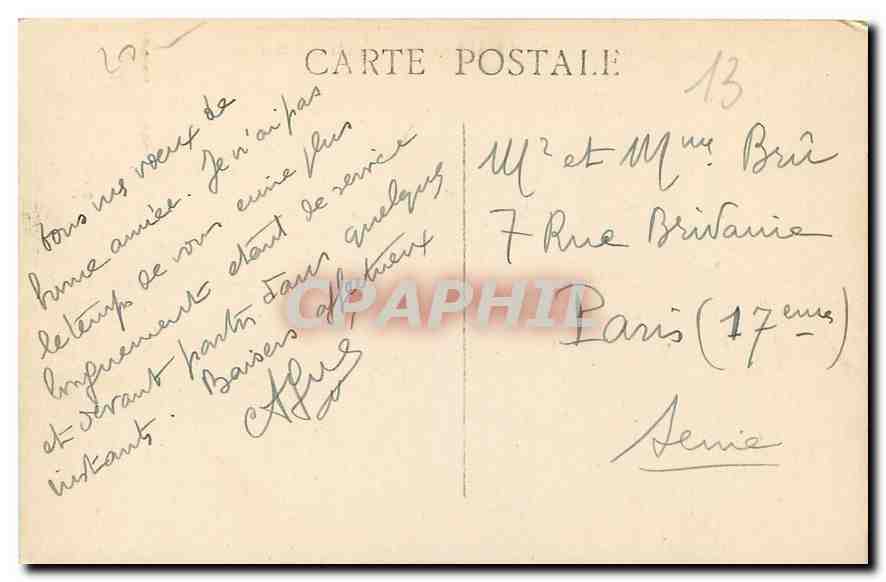 CARTE POSTALE
13
tous nos voeux de
bonne année. Je n'ai pas
le temps de vous écrire plus
longuement étant de service
et devant partir dans quelques
instants. Baisers affectueux
Mr et Mme Brû
7 Rue
Paris (17eme)
Seine
CPAPHIL